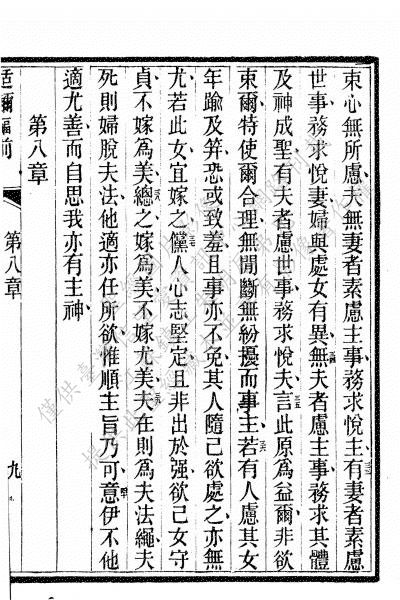 束心無所慮夫無妻者素慮主事務求悅主有妻者素慮
世事務求悅妻婦與處女有異無夫者慮主事務求其體
及神成聖有夫者慮世事務求悅夫言此原為益爾非欲
束爾特使爾合理無閒斷無紛擾而事主若有人慮其女
年踰及笄恐或致羞且事亦不免其人隨己欲處之亦無
尤若此女宜嫁之儻人心志堅定且非出於强欲己女守
貞不嫁為美總之嫁為美不嫁尤美夫在則為夫法繩夫
死則婦脫夫法他適亦任所欲惟順主旨乃可意伊不他
適尤善而自思我亦有主神
第八章
第八章
九